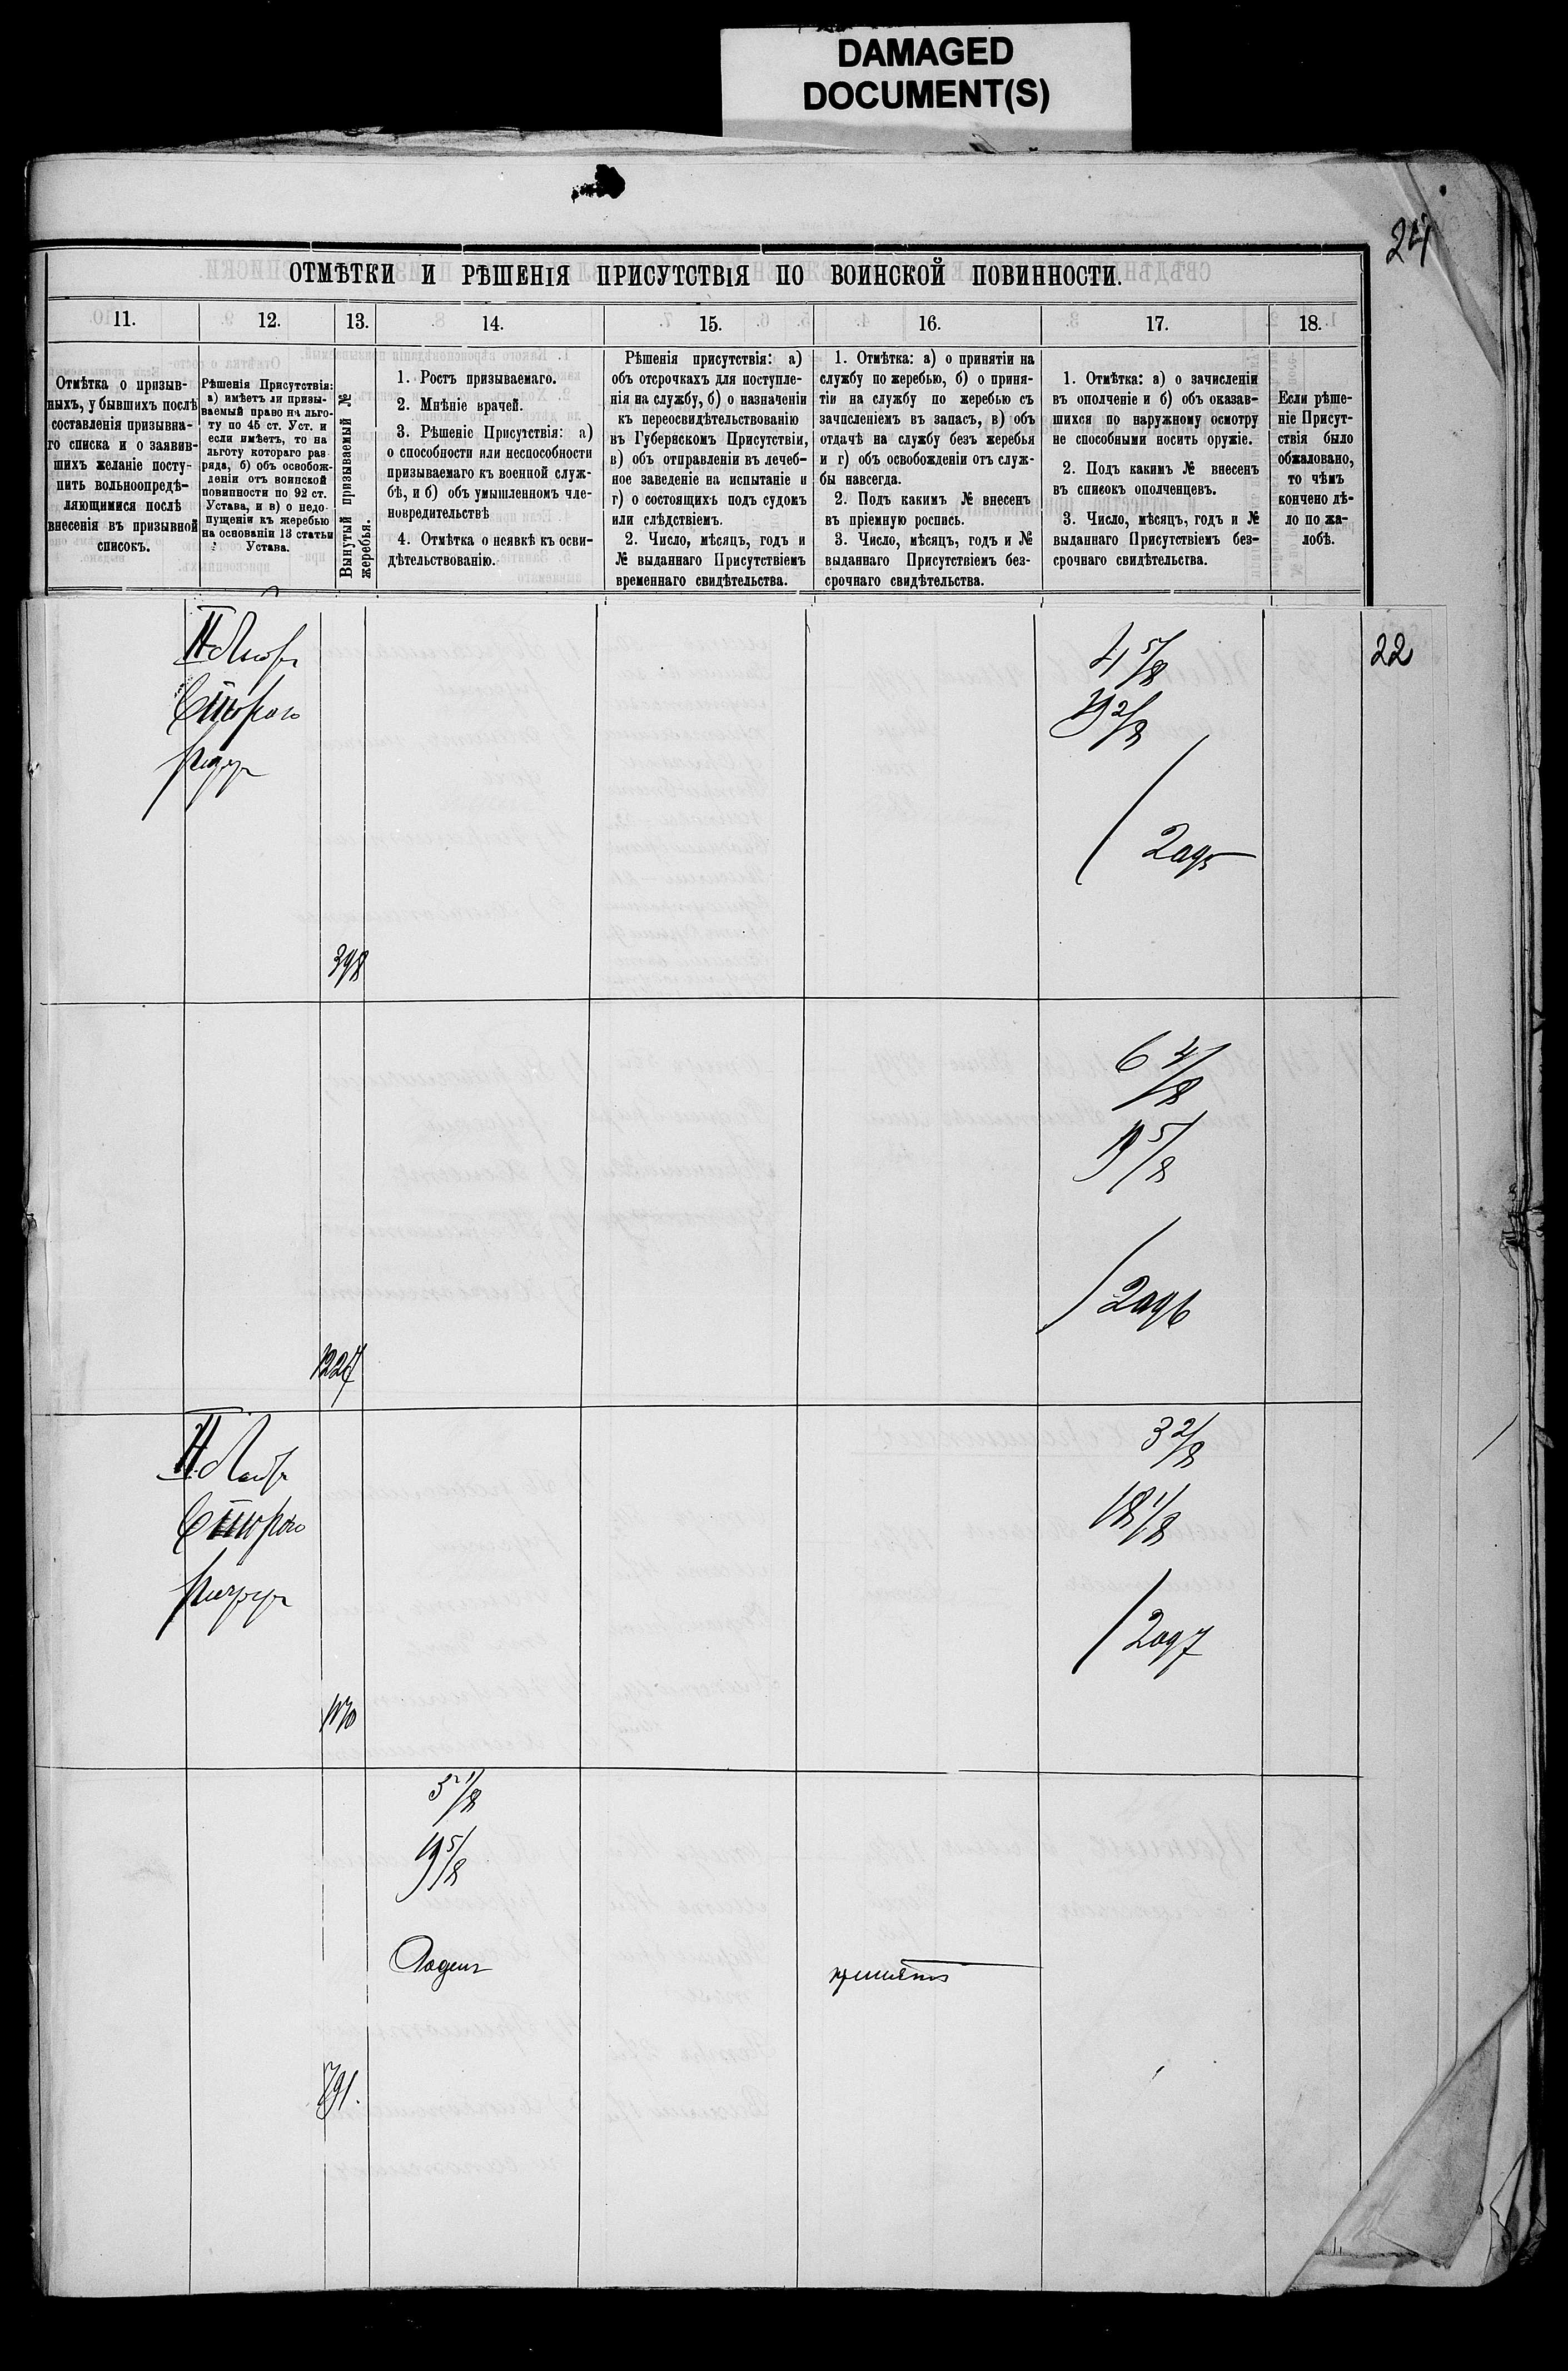 DAMAGED
DOCUMENT(S)
24
ОТМѢТКИ И РѢШЕНІЯ ПРИСУТСТВІЯ ПО ВОИНСКОЙ ПОВИННОСТИ.
11. 12. 13. 14. 15. 16. 17. 18.
Отмѣтка о призыв-
ныхъ, у бывшихъ послѣ
составленія призывна-
го списка и о заявив-
шихъ желаніе посту-
пить вольноопредѣ-
ляющимися послѣ
внесенія въ призывной
списокъ.
Рѣшенія Присутствія:
а) имѣетъ ли призы-
ваемый право на льго-
ту по 45 ст. Уст. и
если имѣетъ, то на
льготу котораго раз
ряда, б) объ освобож-
деніи отъ воинской
повинности по 92 ст.
Устава, и в) о недо-
пущеніи къ жеребью
на основаніи 13 статьи
Устава.
Вынутый призываемый №
жеребья.
1. Ростъ призываемаго.
2. Мнѣніе врачей.
3. Рѣшеніе Присутствія: а)
о способности или неспособности
призываемаго къ военной служ-
бѣ, и б) объ умышленномъ чле-
новредительствѣ
4. Отмѣтка о неявкѣ къ осви-
дѣтельствованію.
Рѣшенія присутствія: а)
объ отсрочкахъ для поступле-
нія на службу, б) о назначеніи
къ переосвидѣтельствованію
въ Губернскомъ Присутствіи,
в) объ отправленіи въ лечеб-
ное заведеніе на испытаніе и
г) о состоящихъ подъ судомъ
или слѣдствіемъ.
2. Число, мѣсяцъ, годъ и
№ выданнаго Присутствіемъ
временнаго свидѣтельства.
1. Отмѣтка: а) о принятіи на
службу по жеребью, б) о приня-
тіи на службу по жеребью съ
зачисленіемъ въ запасъ, в) объ
отдачѣ на службу безъ жеребья
и г) объ освобожденіи отъ служ-
бы навсегда.
2. Подъ какимъ № внесенъ
въ пріемную роспись.
3. Число, мѣсяцъ, годъ и №
выданнаго Присутствіемъ без-
срочнаго свидѣтельства.
1. Отмѣтка: а) о зачисленіи
въ ополченіе и б) объ оказав-
шихся по наружному осмотру
не способными носить оружіе.
2. Подъ какимъ № внесенъ
въ списокъ ополченцевъ.
3. Число, мѣсяцъ, годъ и №
выданнаго Присутствіемъ без-
срочнаго свидѣтельства.
Если рѣше-
ніе Присут-
ствія было
обжаловано,
то чѣмъ
кончено дѣ-
ло по жа-
лобѣ.
II
4 5/8
22
19 2/8
2095
398
6 4/8
19 5/8
2096
1227
II
3 2/8
18 1/8
2097
1170
3 1/8
19 5/8
Годенъ
принятъ
791.